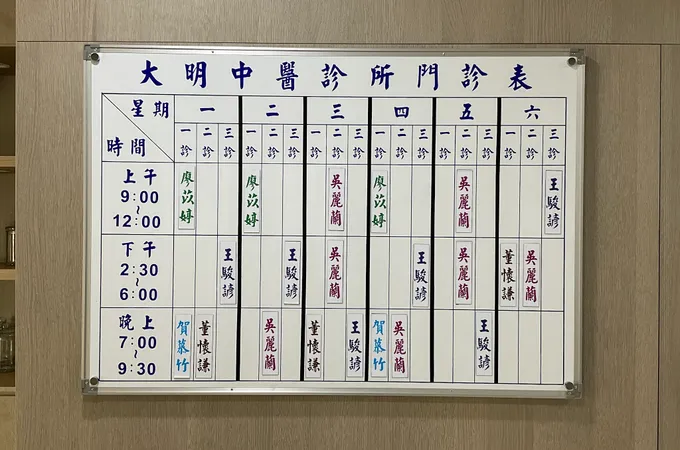 大明中醫診所門診表
星期 一 二 三 四 五 六
時間 一診 二診 三診 一診 二診 三診 一診 二診 三診 一診 二診 三診 一診 二診 三診 一診 二診 三診
上午 9:00~12:00 廖苡婷 廖苡婷 吳麗蘭 廖苡婷 吳麗蘭 王駿諺
下午 2:30~6:00 王駿諺 王駿諺 吳麗蘭 王駿諺 吳麗蘭 董懷謙 吳麗蘭
晚上 7:00~9:30 賀慕竹 董懷謙 吳麗蘭 董懷謙 王駿諺 賀慕竹 吳麗蘭 王駿諺